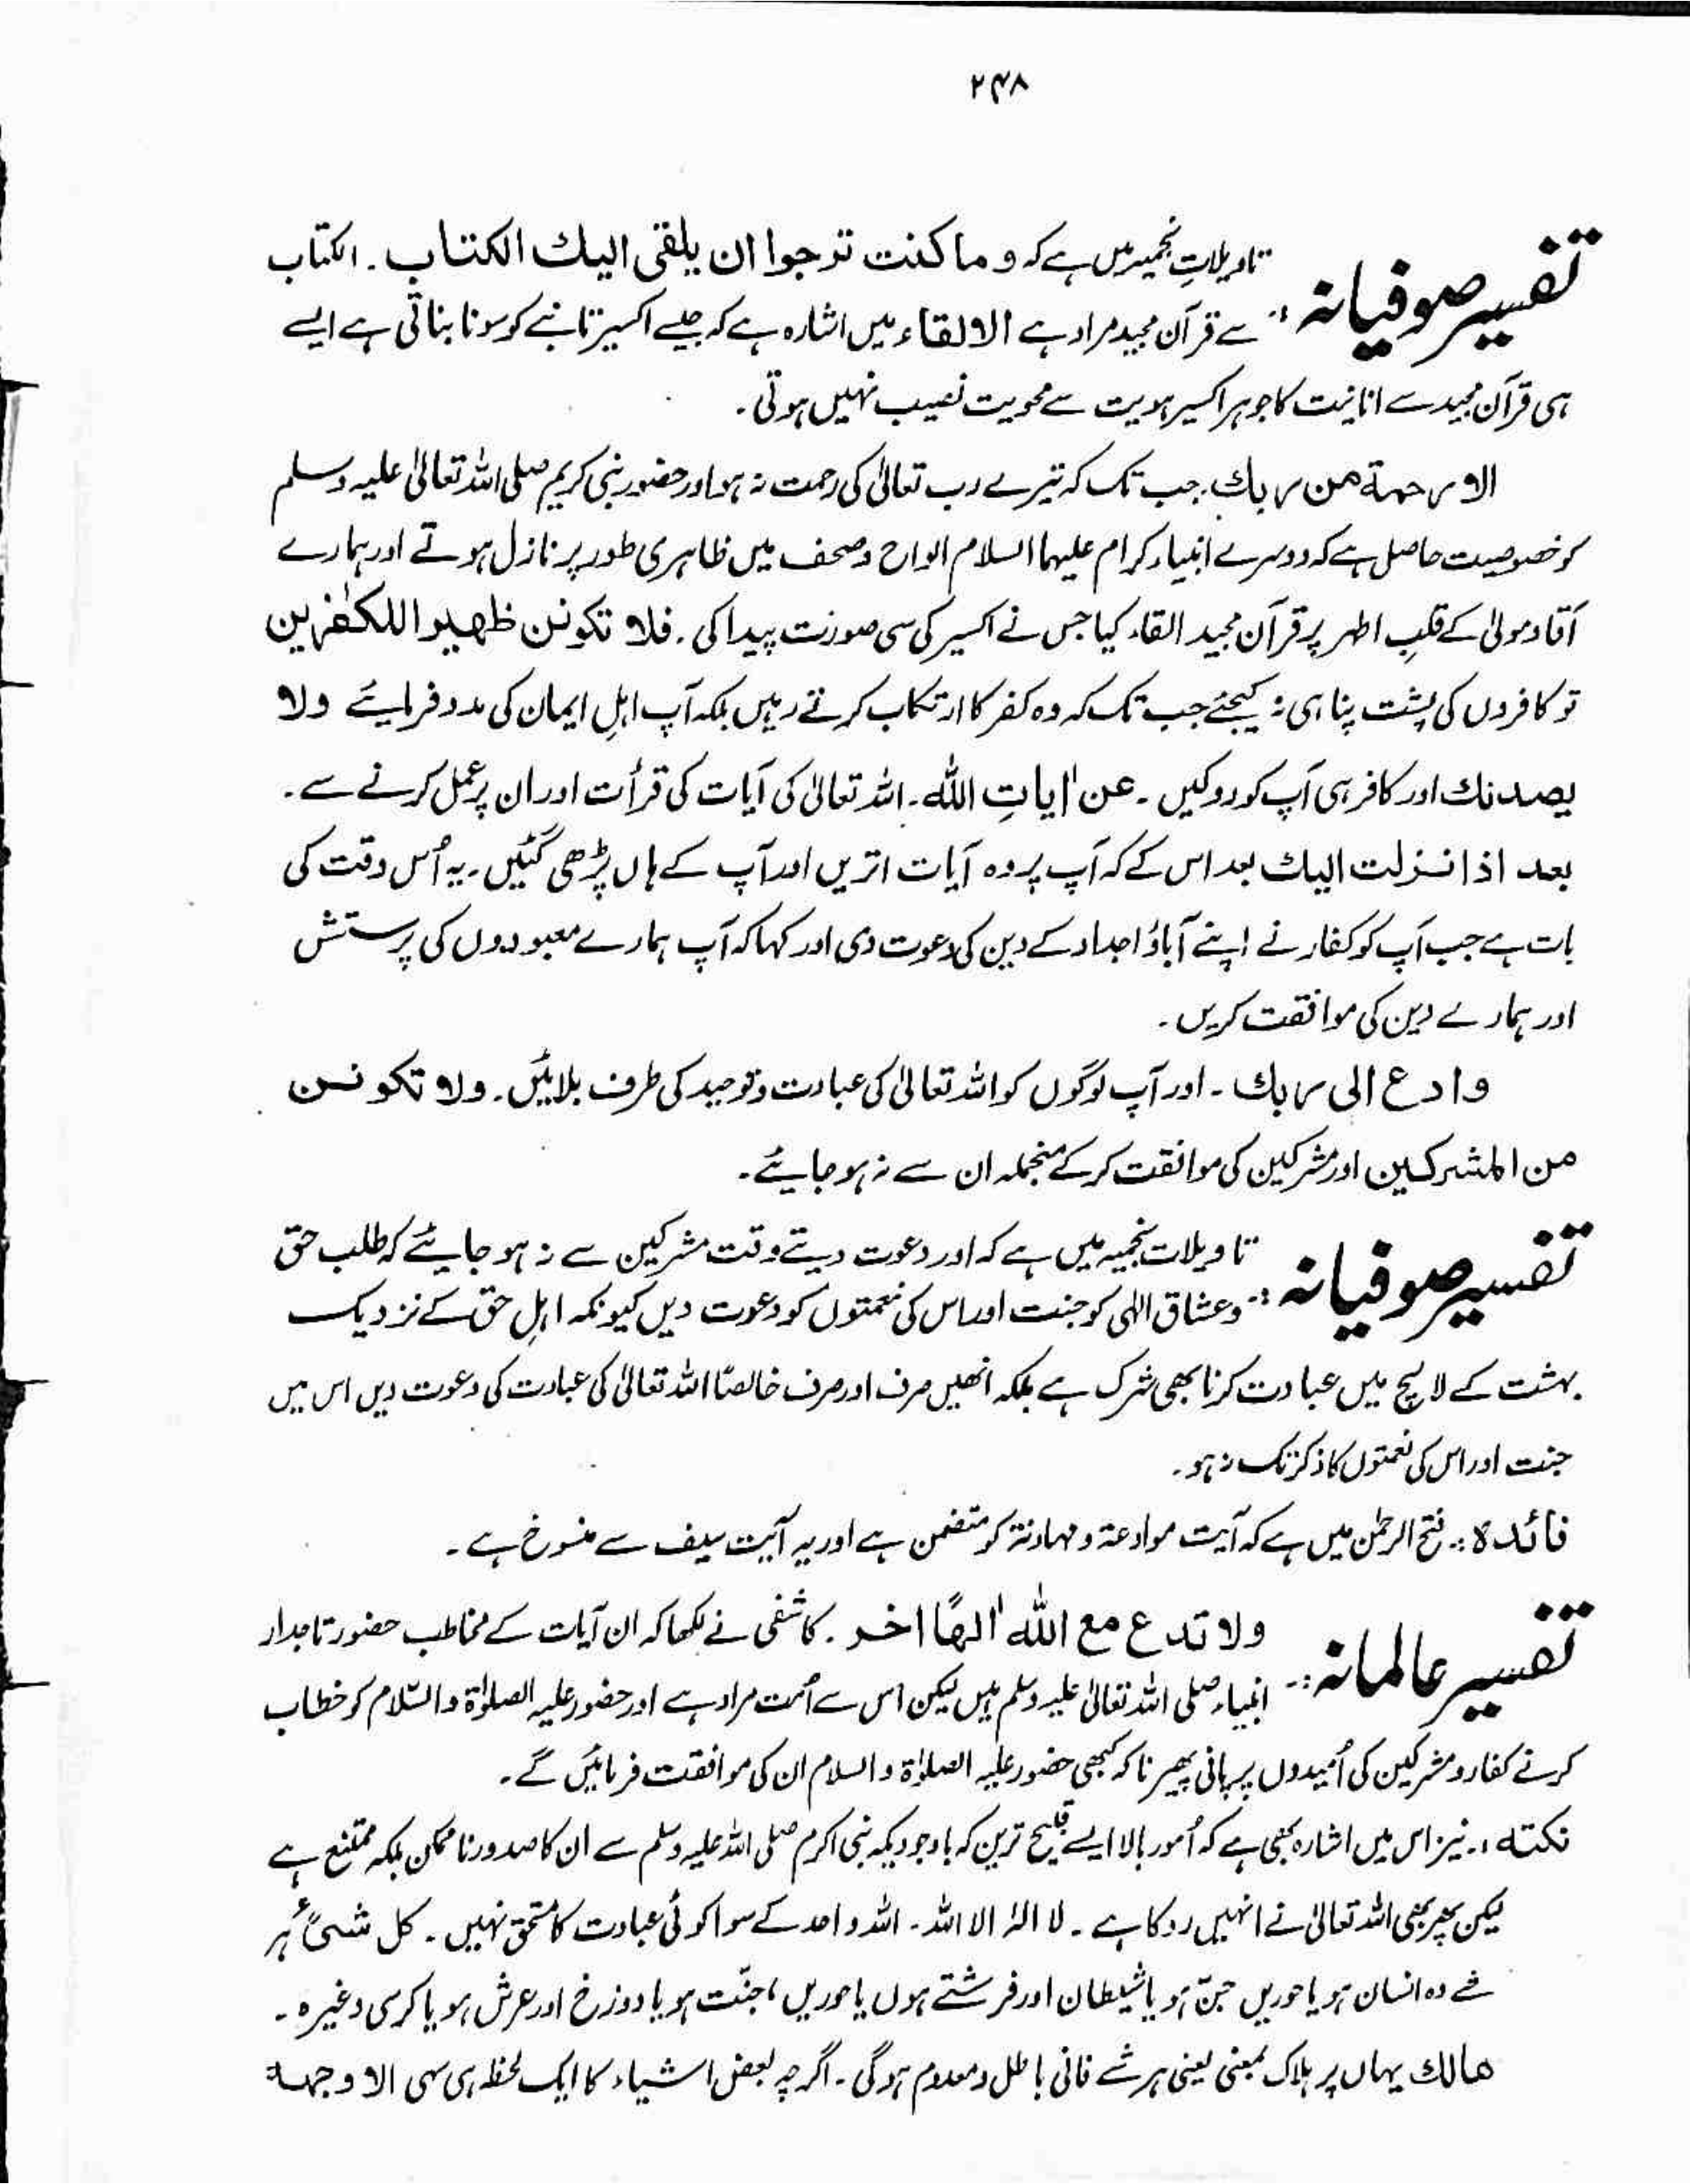 ۲۴۸
تفسیر صوفیانہ :- تاویلاتِ نجمیہ میں ہے کہ وما کنت ترجوا ان یلقی الیك الکتاب ۔ الکتاب
سے قرآن مجید مراد ہے الالقاء میں اشارہ ہے کہ جیسے اکسیر تانبے کو سونا بناتی ہے ایسے
ہی قرآن مجید سے انانیت کا جوہر اکسیر ہویت سے محویت نصیب نہیں ہوتی ۔
الا رحمة من ربك ۔ جب تک کہ تیرے رب تعالیٰ کی رحمت نہ ہو اور حضور نبی کریم صلی اللہ تعالیٰ علیہ وسلم
کو خصوصیت حاصل ہے کہ دوسرے انبیاء کرام علیہما السلام الواح و صحف میں ظاہری طور پر نازل ہوتے اور ہمارے
آقا و مولیٰ کے قلبِ اطہر پر قرآن مجید القاء کیا جس نے اکسیر کی سی صورت پیدا کی ۔ فلا تکونن ظھیرا للکٰفرین
تو کافروں کی پشت پناہی نہ کیجئے جب تک کہ وہ کفر کا ارتکاب کرتے رہیں بلکہ آپ اہلِ ایمان کی مدد فرمایئے ولا
یصدنك اور کافر ہی آپ کو روکیں ۔ عن اٰیاتِ اللہ ۔ اللہ تعالیٰ کی آیات کی قرأت اور ان پر عمل کرنے سے ۔
بعد اذ انزلت الیك بعد اس کے کہ آپ پر وہ آیات اتریں اور آپ کے ہاں پڑھی گئیں ۔ یہ اُس وقت کی
بات ہے جب آپ کو کفار نے اپنے آباؤ اجداد کے دین کی دعوت دی اور کہا کہ آپ ہمارے معبودوں کی پرستش
اور ہمارے دین کی موافقت کریں ۔
وادع الی ربك ۔ اور آپ لوگوں کو اللہ تعالیٰ کی عبادت و توحید کی طرف بلائیں ۔ ولا تکونن
من المشرکین اور مشرکین کی موافقت کر کے منجملہ ان سے نہ ہو جایئے ۔
تفسیر صوفیانہ :- تاویلات نجمیہ میں ہے کہ اور دعوت دیتے وقت مشرکین سے نہ ہو جایئے کہ طلب حق
و عشاق الٰہی کو جنت اور اس کی نعمتوں کو دعوت دیں کیونکہ اہلِ حق کے نزدیک
بہشت کے لالچ میں عبادت کرنا بھی شرک ہے بلکہ انھیں صرف اور صرف خالصًا اللہ تعالیٰ کی عبادت کی دعوت دیں اس میں
جنت اور اس کی نعمتوں کا ذکر تک نہ ہو ۔
فائدہ :- فتح الرحمٰن میں ہے کہ آیت موادعۃ و مہادنۃ کو متضمن ہے اور یہ آیت سیف سے منسوخ ہے ۔
تفسیر عالمانہ :- ولا تدع مع اللہ اٰلھًا اخر ۔ کاشفی نے لکھا کہ ان آیات کے مخاطب حضور تاجدار
انبیاء صلی اللہ تعالیٰ علیہ وسلم ہیں لیکن اس سے اُمت مراد ہے اور حضور علیہ الصلوٰۃ والسّلام کو خطاب
کرنے کفار و مشرکین کی اُمیدوں پر پانی پھیرنا کہ کبھی حضور علیہ الصلوٰۃ والسلام ان کی موافقت فرمائیں گے ۔
نکتہ :- نیز اس میں اشارہ بھی ہے کہ اُمور بالا ایسے قبیح ترین کہ باوجودیکہ نبی اکرم صلی اللہ علیہ وسلم سے ان کا صدور ناممکن بلکہ ممتنع ہے
لیکن پھر بھی اللہ تعالیٰ نے انہیں روکا ہے ۔ لا الٰہ الا اللہ ۔ اللہ واحد کے سوا کوئی عبادت کا مستحق نہیں ۔ کل شیءٍ ہر
شے وہ انسان ہو یا حوریں جنّ ہو یا شیطان اور فرشتے ہوں یا حوریں ، جنّت ہو یا دوزخ اور عرش ہو یا کرسی وغیرہ ۔
ھالك یہاں پر ہلاک بمعنی یعنی ہر شے فانی باطل و معدوم ہوگی ۔ اگرچہ بعض اشیاء کا ایک لحظہ ہی سہی الا وجھہ